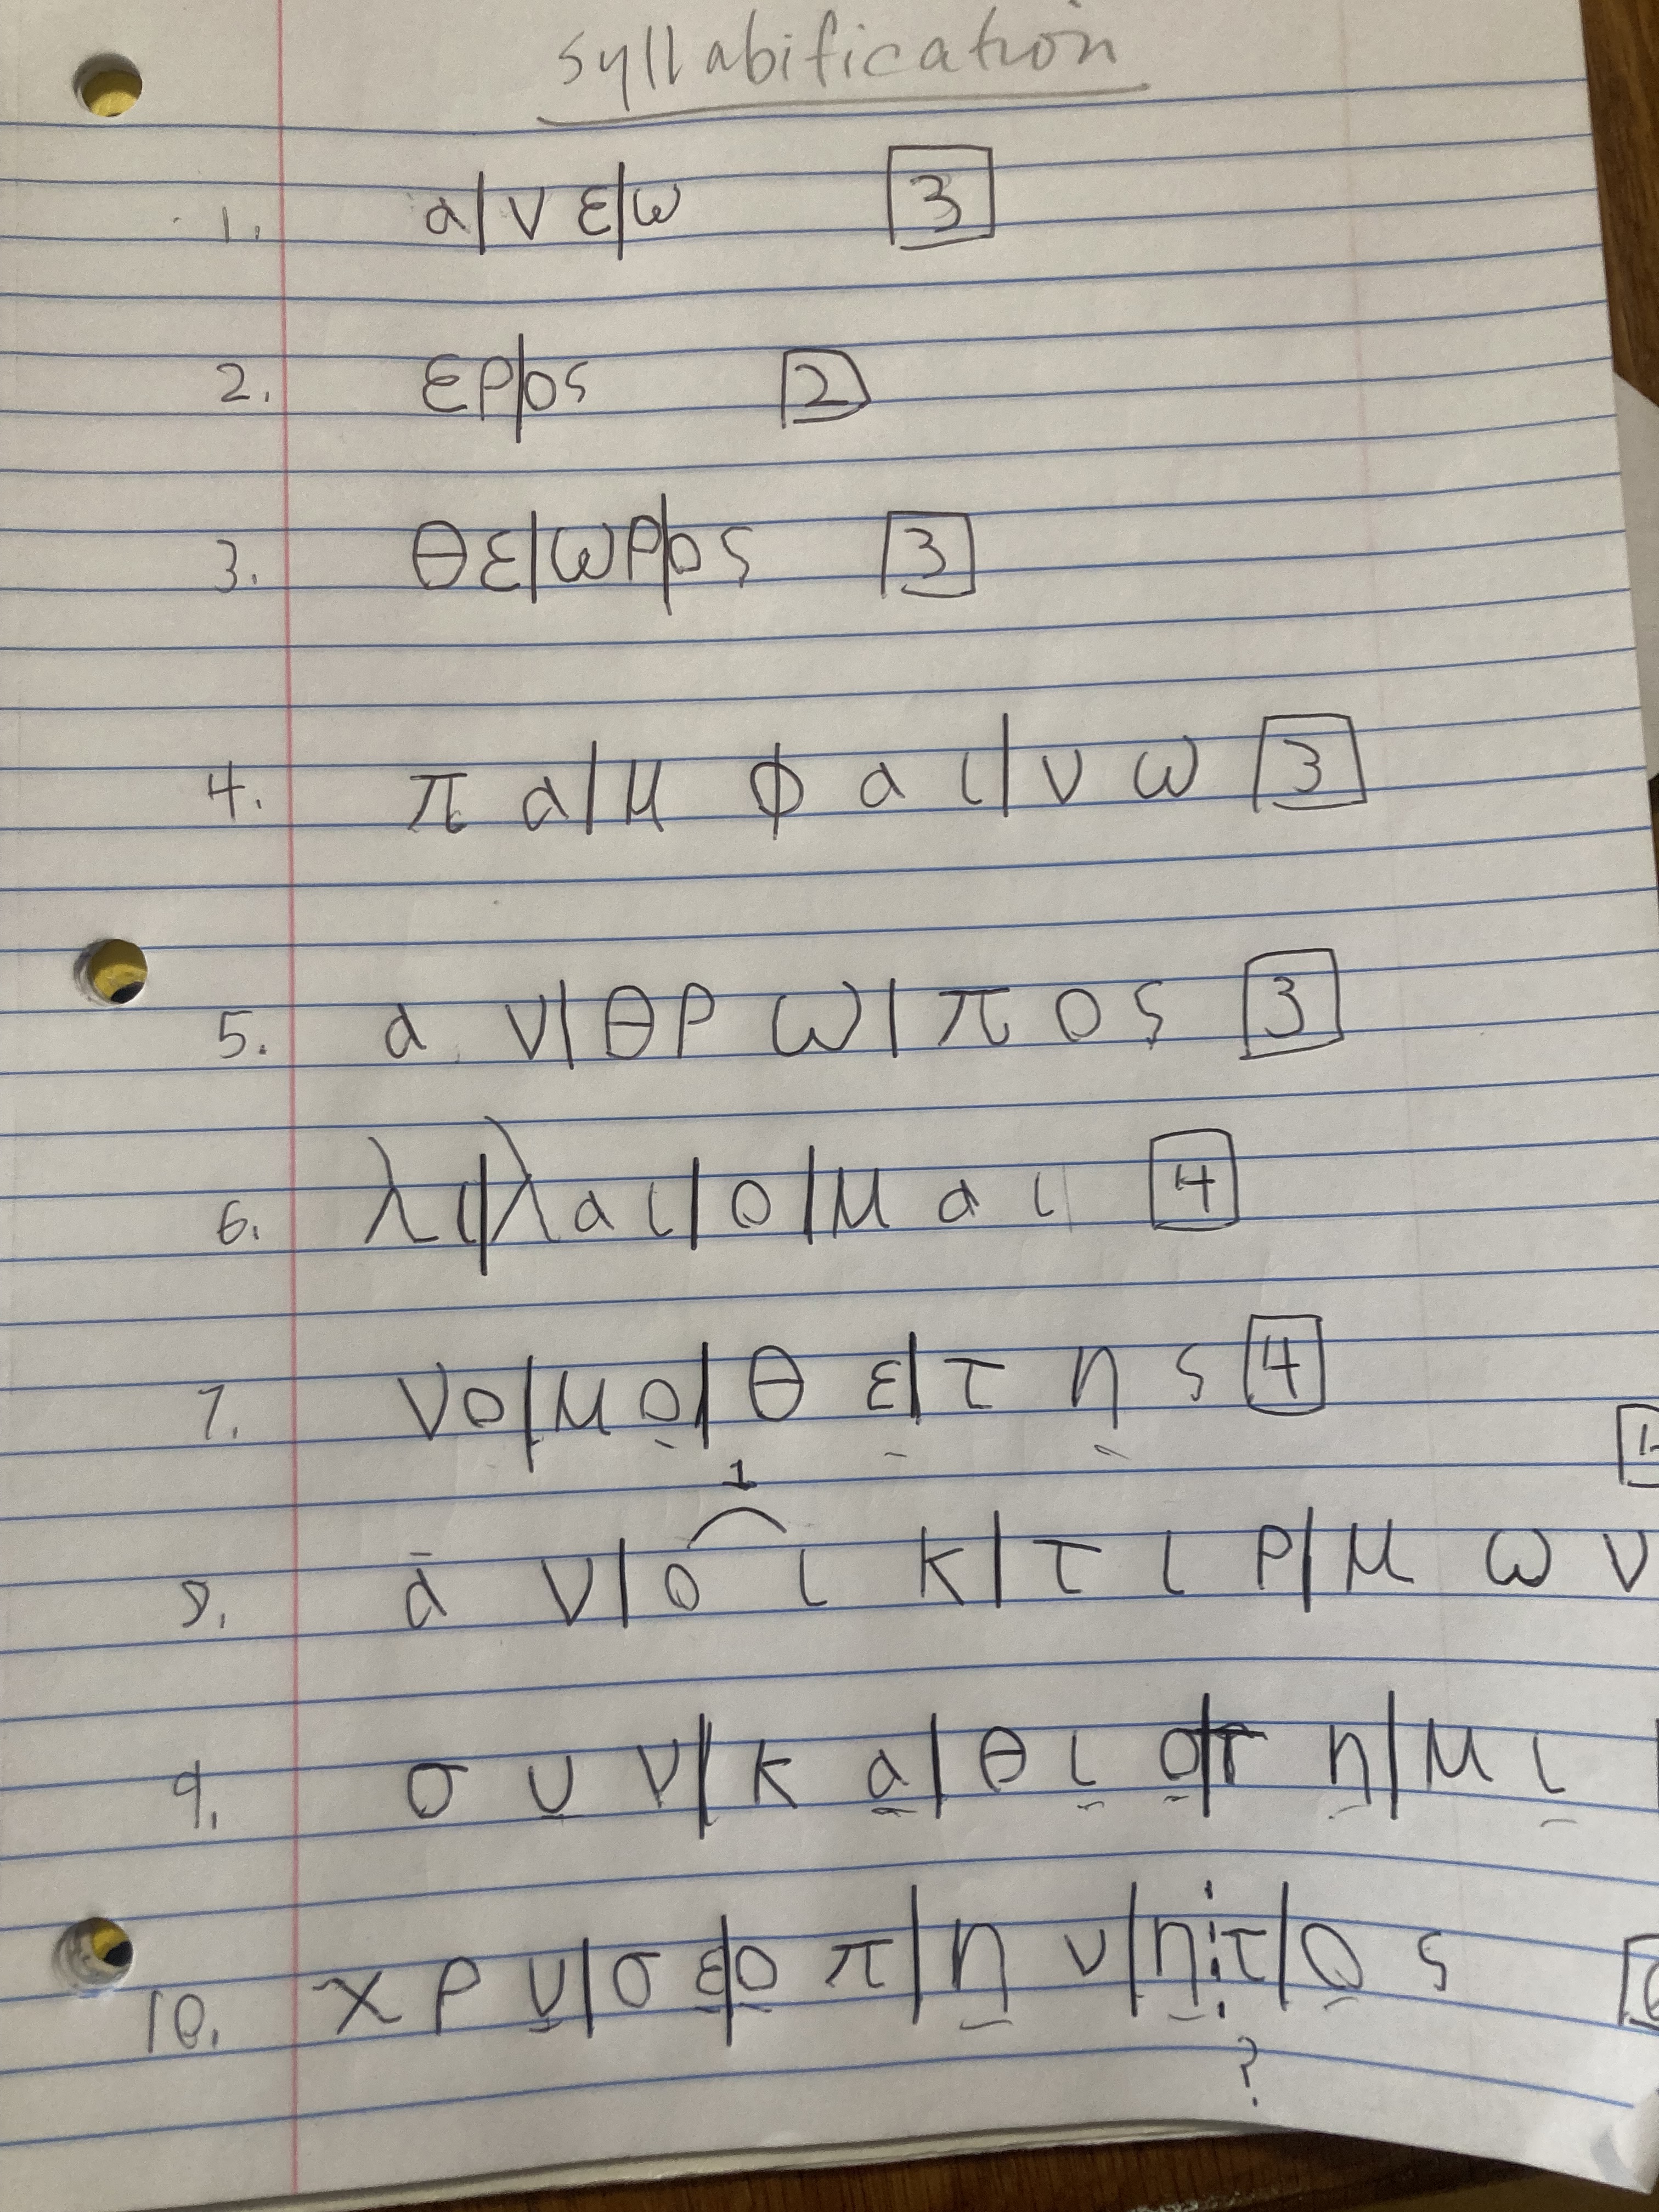 syllabification
1. α/νε/ω 3
2. ερ/ος 2
3. θε/ωρ/ος 3
4. πα/μφαι/νω 3
5. αν/θρω/πος 3
6. λι/λαι/ο/μαι 4
7. νο/μο/θε/της 4
1
8. ᾱν/οικ/τιρ/μων
9. συν/κα/θισ/τη/μι
10. χρυ/σε/οπ/ην/η¦τ/ος
?